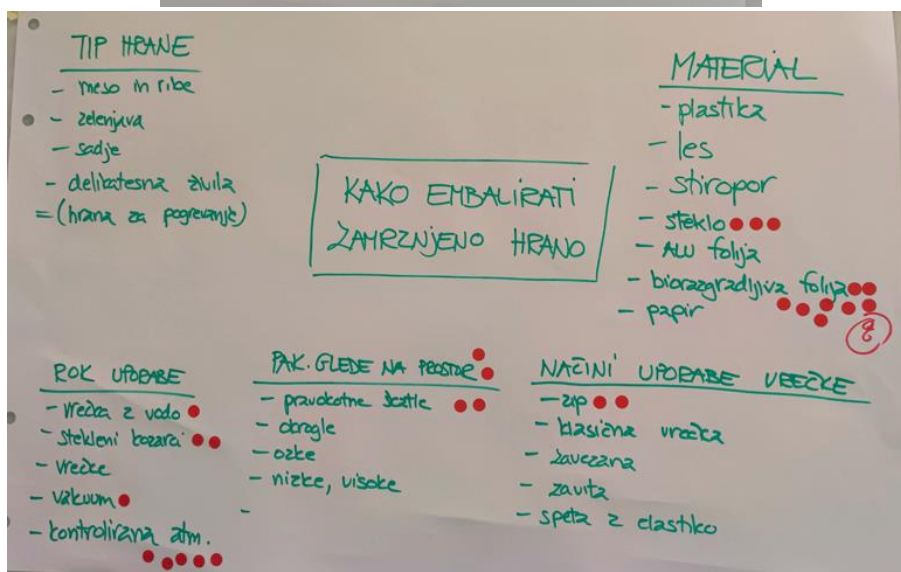 TIP HRANE
- meso in ribe
- zelenjava
- sadje
- delikatesna živila
= (hrana za pogrevanje)
KAKO EMBALIRATI
ZAMRZNJENO HRANO
MATERIAL
- plastika
- les
- stiropor
- steklo
- ALU folija
- biorazgradljiva folija
- papir
8
ROK UPORABE
- vrečka z vodo
- stekleni kozarci
- vrečke
- vakuum
- kontrolirana atm.
PAK. GLEDE NA PROSTOR
- pravokotne škatle
- okrogle
- ozke
- nizke, visoke
-
NAČINI UPORABE VREČKE
- zip
- klasična vrečka
- zavezana
- zavita
- speta z elastiko